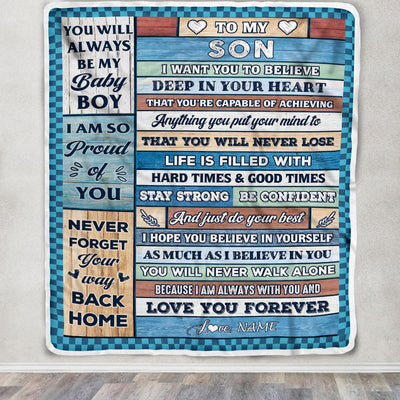 YOU WILL
ALWAYS
BE MY
Baby
BOY
I AM SO
Proud
of
YOU
NEVER
FORGET
Your
way
BACK
HOME
TO MY
SON
I WANT YOU TO BELIEVE
DEEP IN YOUR HEART
THAT YOU'RE CAPABLE OF ACHIEVING
Anything you put your mind to
THAT YOU WILL NEVER LOSE
LIFE IS FILLED WITH
HARD TIMES & GOOD TIMES
STAY STRONG BE CONFIDENT
And just do your best
I HOPE YOU BELIEVE IN YOURSELF
AS MUCH AS I BELIEVE IN YOU
YOU WILL NEVER WALK ALONE
BECAUSE I AM ALWAYS WITH YOU AND
LOVE YOU FOREVER
Love, NAME